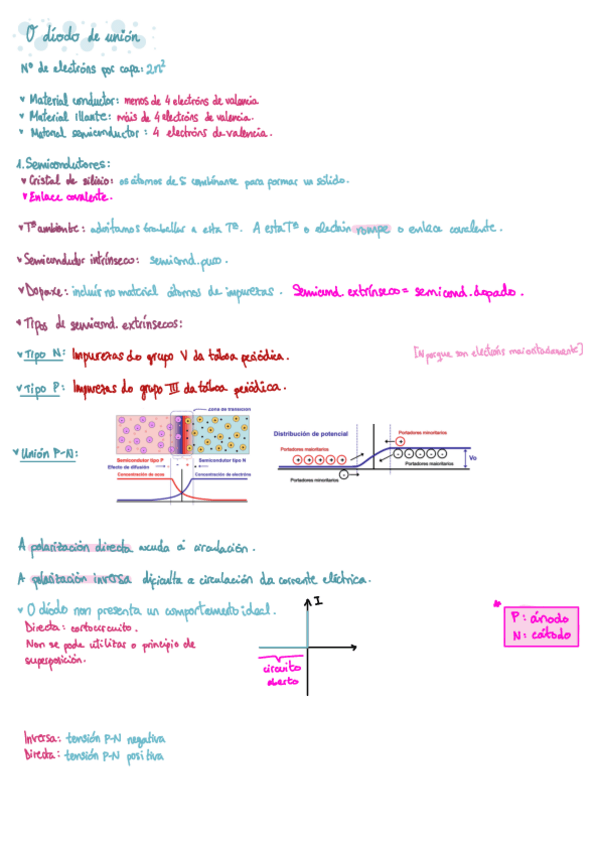 O díodo de unión
Nº de electróns por capa: 2n²
Material conductor: menos de 4 electróns de valencia
Material illante: máis de 4 electróns de valencia.
Material semiconductor: 4 electróns de valencia.
1. Semicondutores:
Cristal de silicio: os átomos de S combínanse para formar un sólido.
Enlace covalente.
Tª ambiente: adoitamos traballar a esta Tª. A esta Tª o electrón rompe o enlace covalente.
Semicondutor intrínseco: semicond. puro.
Dopaxe: incluír no material átomos de impurezas. Semicond. extrínseco = semicond. dopado.
Tipos de semicond. extrínsecos:
Tipo N: Impurezas do grupo V da táboa periódica. [N porque son electróns maioritariamente]
Tipo P: Impurezas do grupo III da táboa periódica.
Unión P-N:
Zona de transición
Semicondutor tipo P - + Semicondutor tipo N
Efecto de difusión
Concentración de ocos Concentración de electróns
Distribución de potencial
Portadores minoritarios
Portadores maioritarios
Portadores maioritarios
Portadores minoritarios
Vo
A polarización directa axuda á circulación.
A polarización inversa dificulta a circulación da corrente eléctrica.
O díodo non presenta un comportamento ideal.
Directa: cortocircuito.
Non se pode utilizar o principio de
superposición.
I
circuito
aberto
P: ánodo
N: cátodo
Inversa: tensión P-N negativa
Directa: tensión P-N positiva